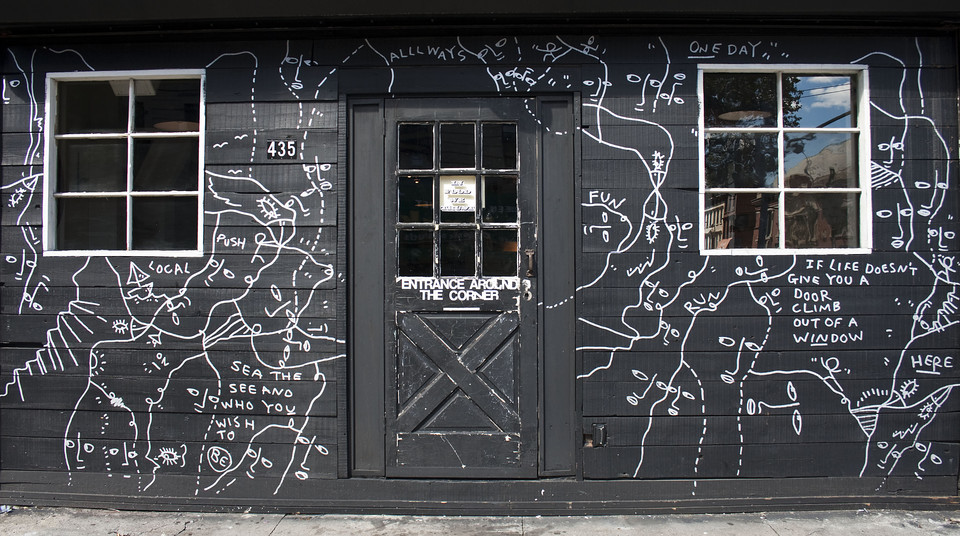 ALLLWAYS
ONE DAY
435
IN
FOOD
WE
FUN
PUSH
LOCAL
ENTRANCE AROUND
THE CORNER
RUN
IF LIFE DOESN'T
GIVE YOU A
DOOR
CLIMB
OUT OF A
WINDOW
HERE
SEA THE
SEE AND
WHO YOU
WISH
TO
BE